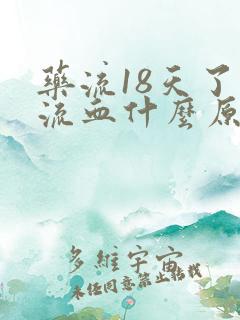 藥流18天了
流血什麼原
多維宇宙
未经同意禁止搬栽